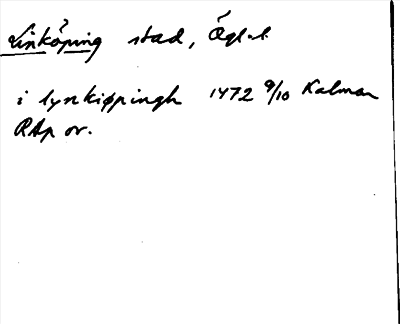 Linköping stad, Ögl.
i lynkiøpingh 1472 9/10 Kalmar
RAp or.